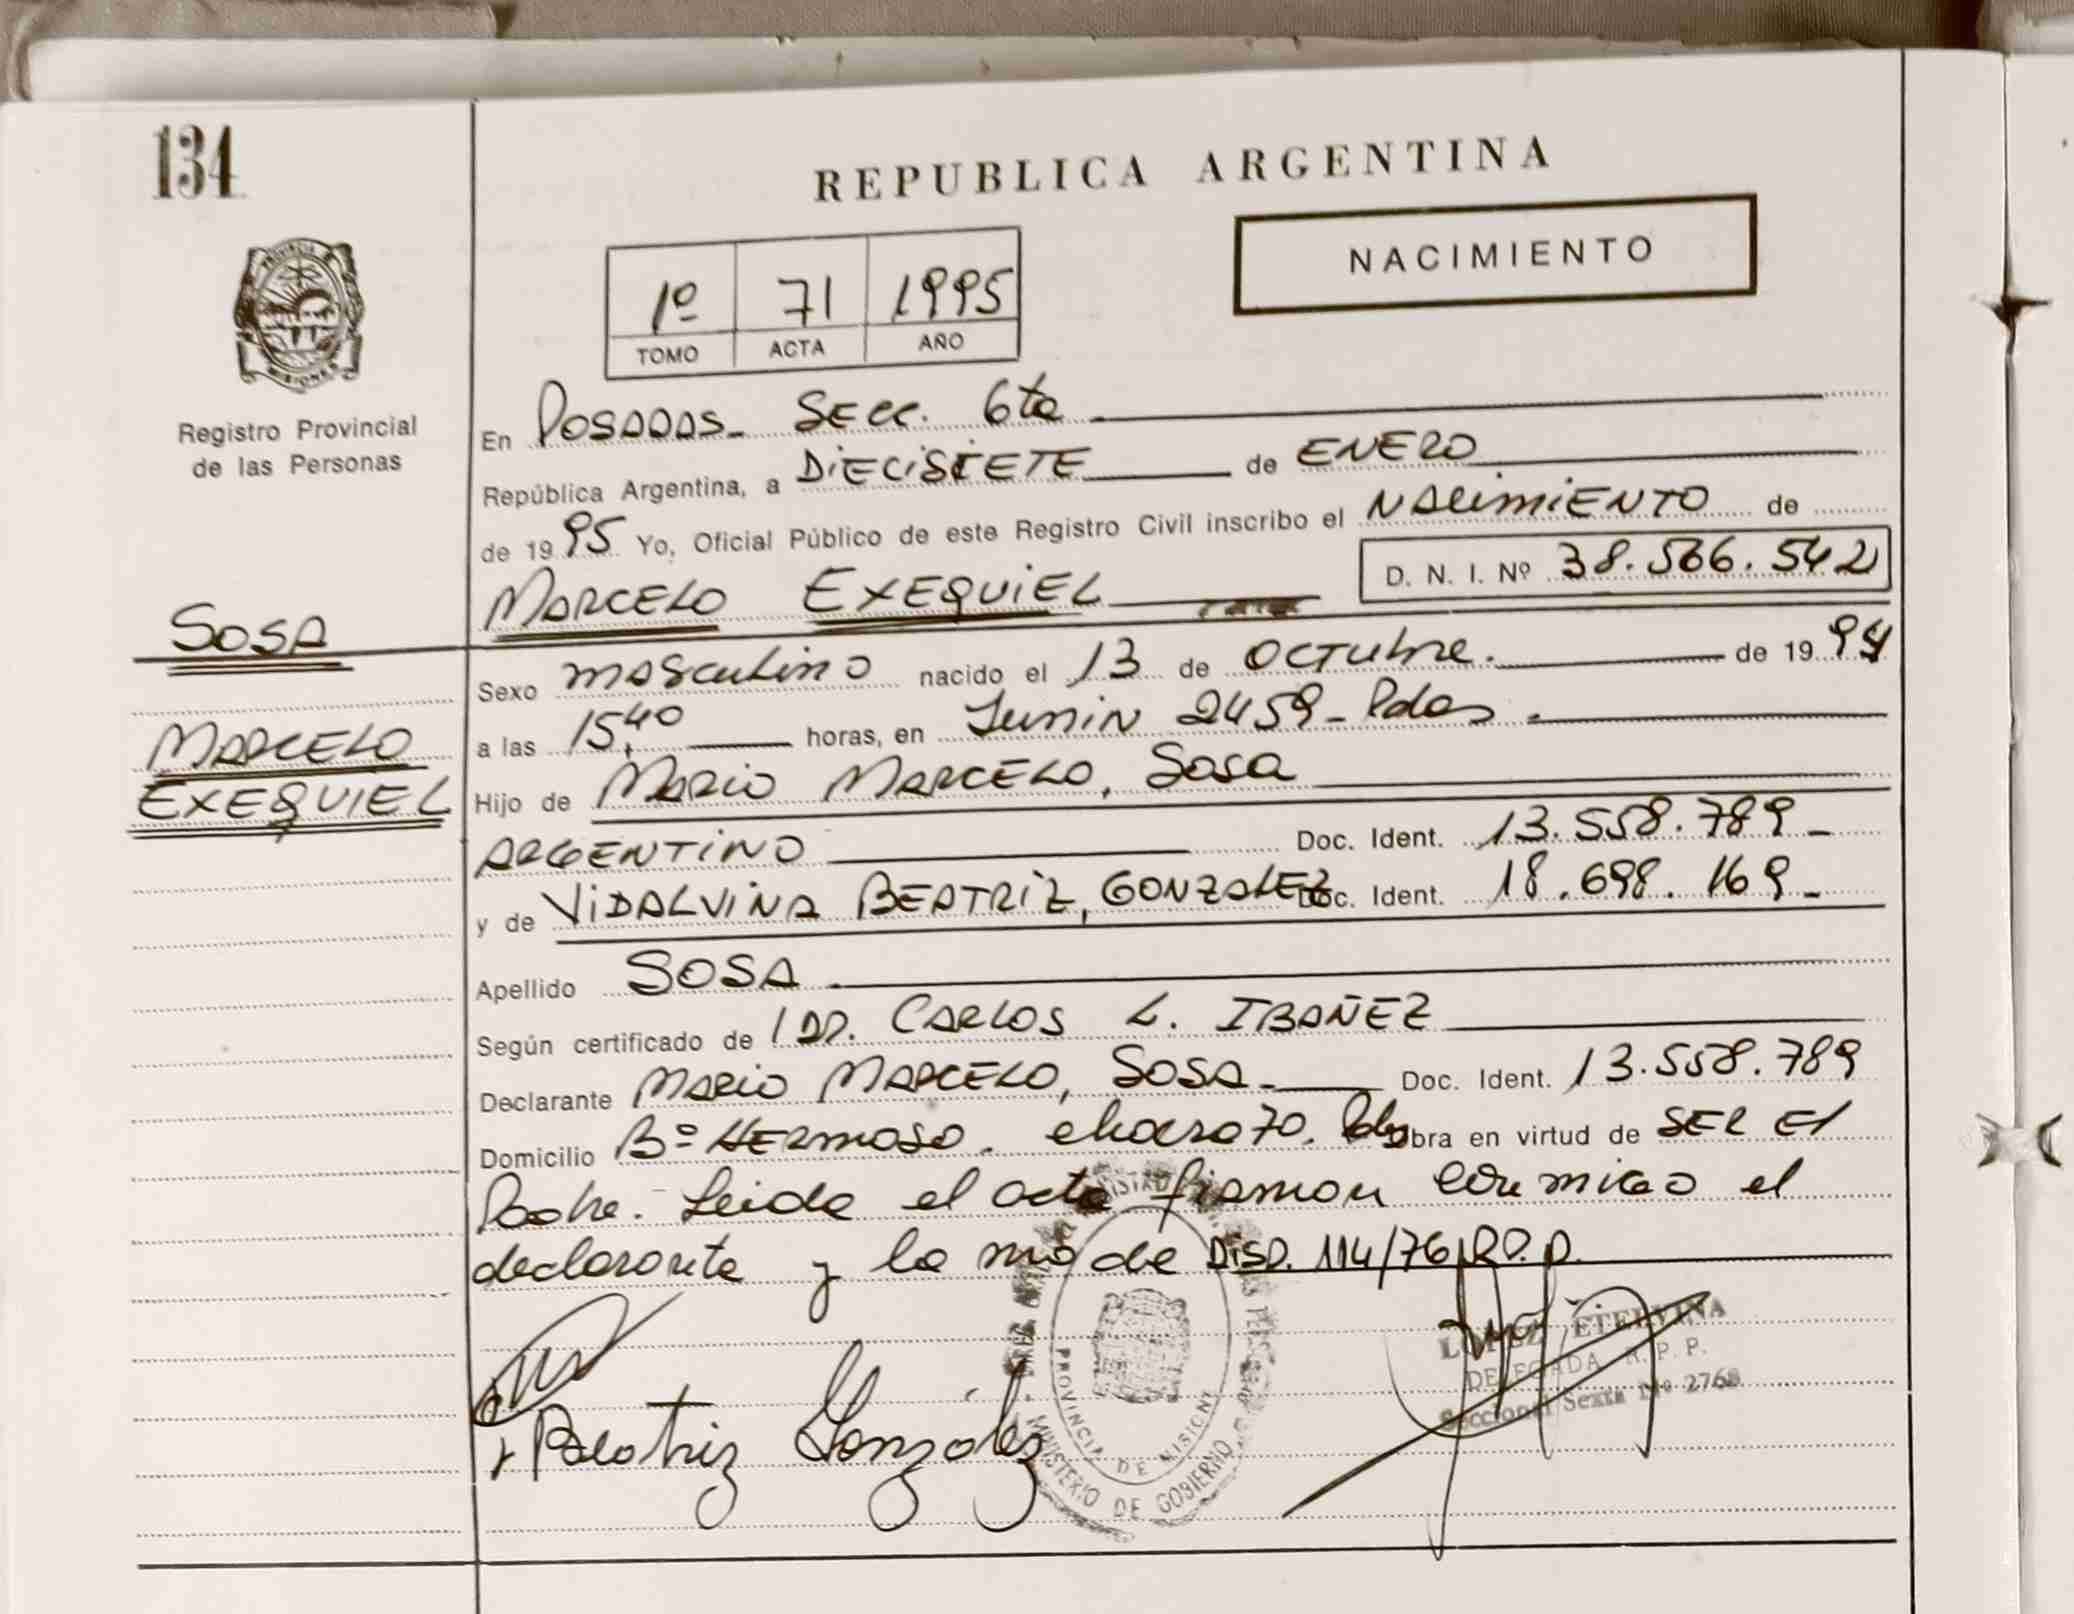 134
REPUBLICA ARGENTINA
NACIMIENTO
1º 71 1995
TOMO ACTA AÑO
PROVINCIA DE
MISIONES
Registro Provincial
de las Personas
En POSADAS- Secc. 6ta
República Argentina, a DiECiSiETE de ENERO
de 1995 Yo, Oficial Público de este Registro Civil inscribo el NACimiENTO de
D. N. I. Nº 38.566.542
MARCELO EXEQUiEL
SOSA
Sexo masculino nacido el 13 de OCTubre. de 1994
MARCELO
EXEQUIEL
a las 15,40 horas, en Junin 2459- Pdas.
Hijo de MARiO MARCELO, Sosa
ARGENTiNO Doc. Ident. 13.558.789-
y de ViDALViNA BEATRiZ, GONZALEZ Doc. Ident. 18.698.169-
Apellido SOSA
Según certificado de DR. CARLOS L. IBAÑEZ
Declarante MARiO MARCELO, SOSA- Doc. Ident. 13.558.789
Domicilio Bº HERMOSO. chacra 70. Pdas Obra en virtud de SER El
Padre.- Leida el acta firman conmigo el
declarante y la madre DiSP. 114/76 R.P.P.
LOPEZ ETELVINA
DELEGADA R. P. P.
Seccional Sexta Nº 2768
Beatriz Gonzalez
PROVINCIA DE MISIONES
MINISTERIO DE GOBIERNO